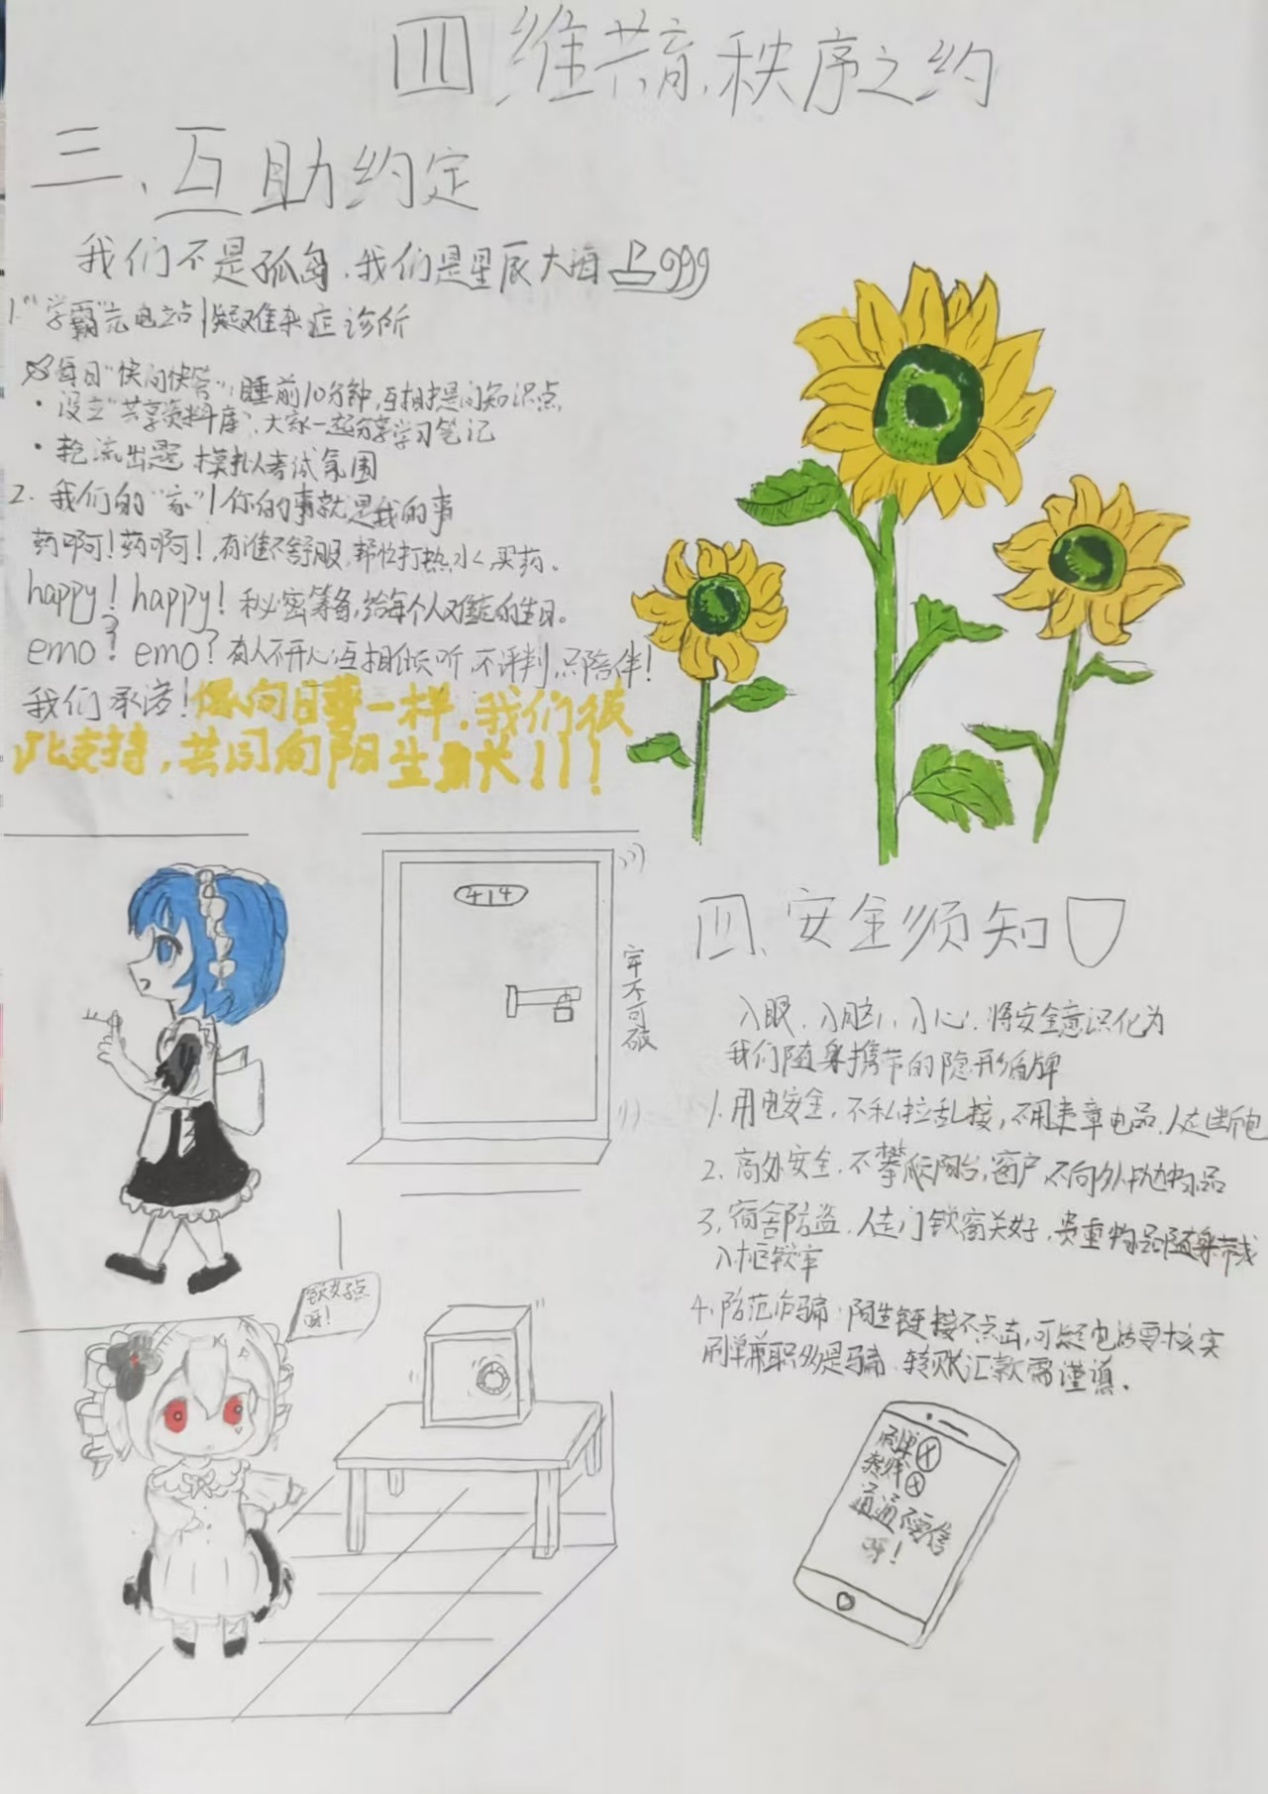 四维共育,秩序之约
三、互助约定
我们不是孤岛,我们是星辰大海
1."学霸"充电站|疑难杂症诊所
每日"快问快答",睡前10分钟,互相提问知识点,
·设立"共享资料库",大家一起分享学习笔记
·轮流出题 模拟考试氛围
2. 我们的"家"|你的事就是我的事
药啊!药啊!,有谁不舒服,帮忙打热水,买药。
happy! happy! 秘密筹备,给每个人难忘的生日。
emo? emo? 有人不开心互相倾听,不评判,只陪伴!
我们承诺!像向日葵一样,我们彼
此支持,共同向阳生长!!!
414
牢不可破
四、安全须知
入眼、入脑、入心,将安全意识化为
我们随身携带的隐形盾牌
1. 用电安全,不私拉乱接,不用违章电品,人走断电
2. 高处安全,不攀爬阳台,窗户,不向外抛物品
3. 宿舍防盗,人走门锁窗关好,贵重物品随身带或
入柜锁牢
4. 防范诈骗:陌生链接不点击,可疑电话要核实
刷单兼职多是骗,转账汇款需谨慎.
锁好点
呀!
刷单
通通不要信
呀!